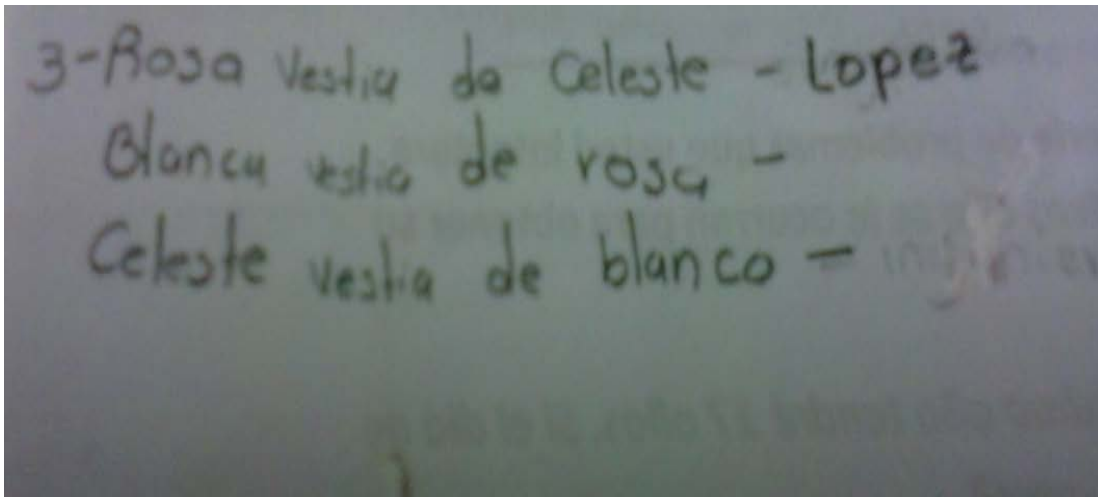 3-Rosa Vestia de Celeste - Lopez
Blanca vestia de rosa -
Celeste vestia de blanco -